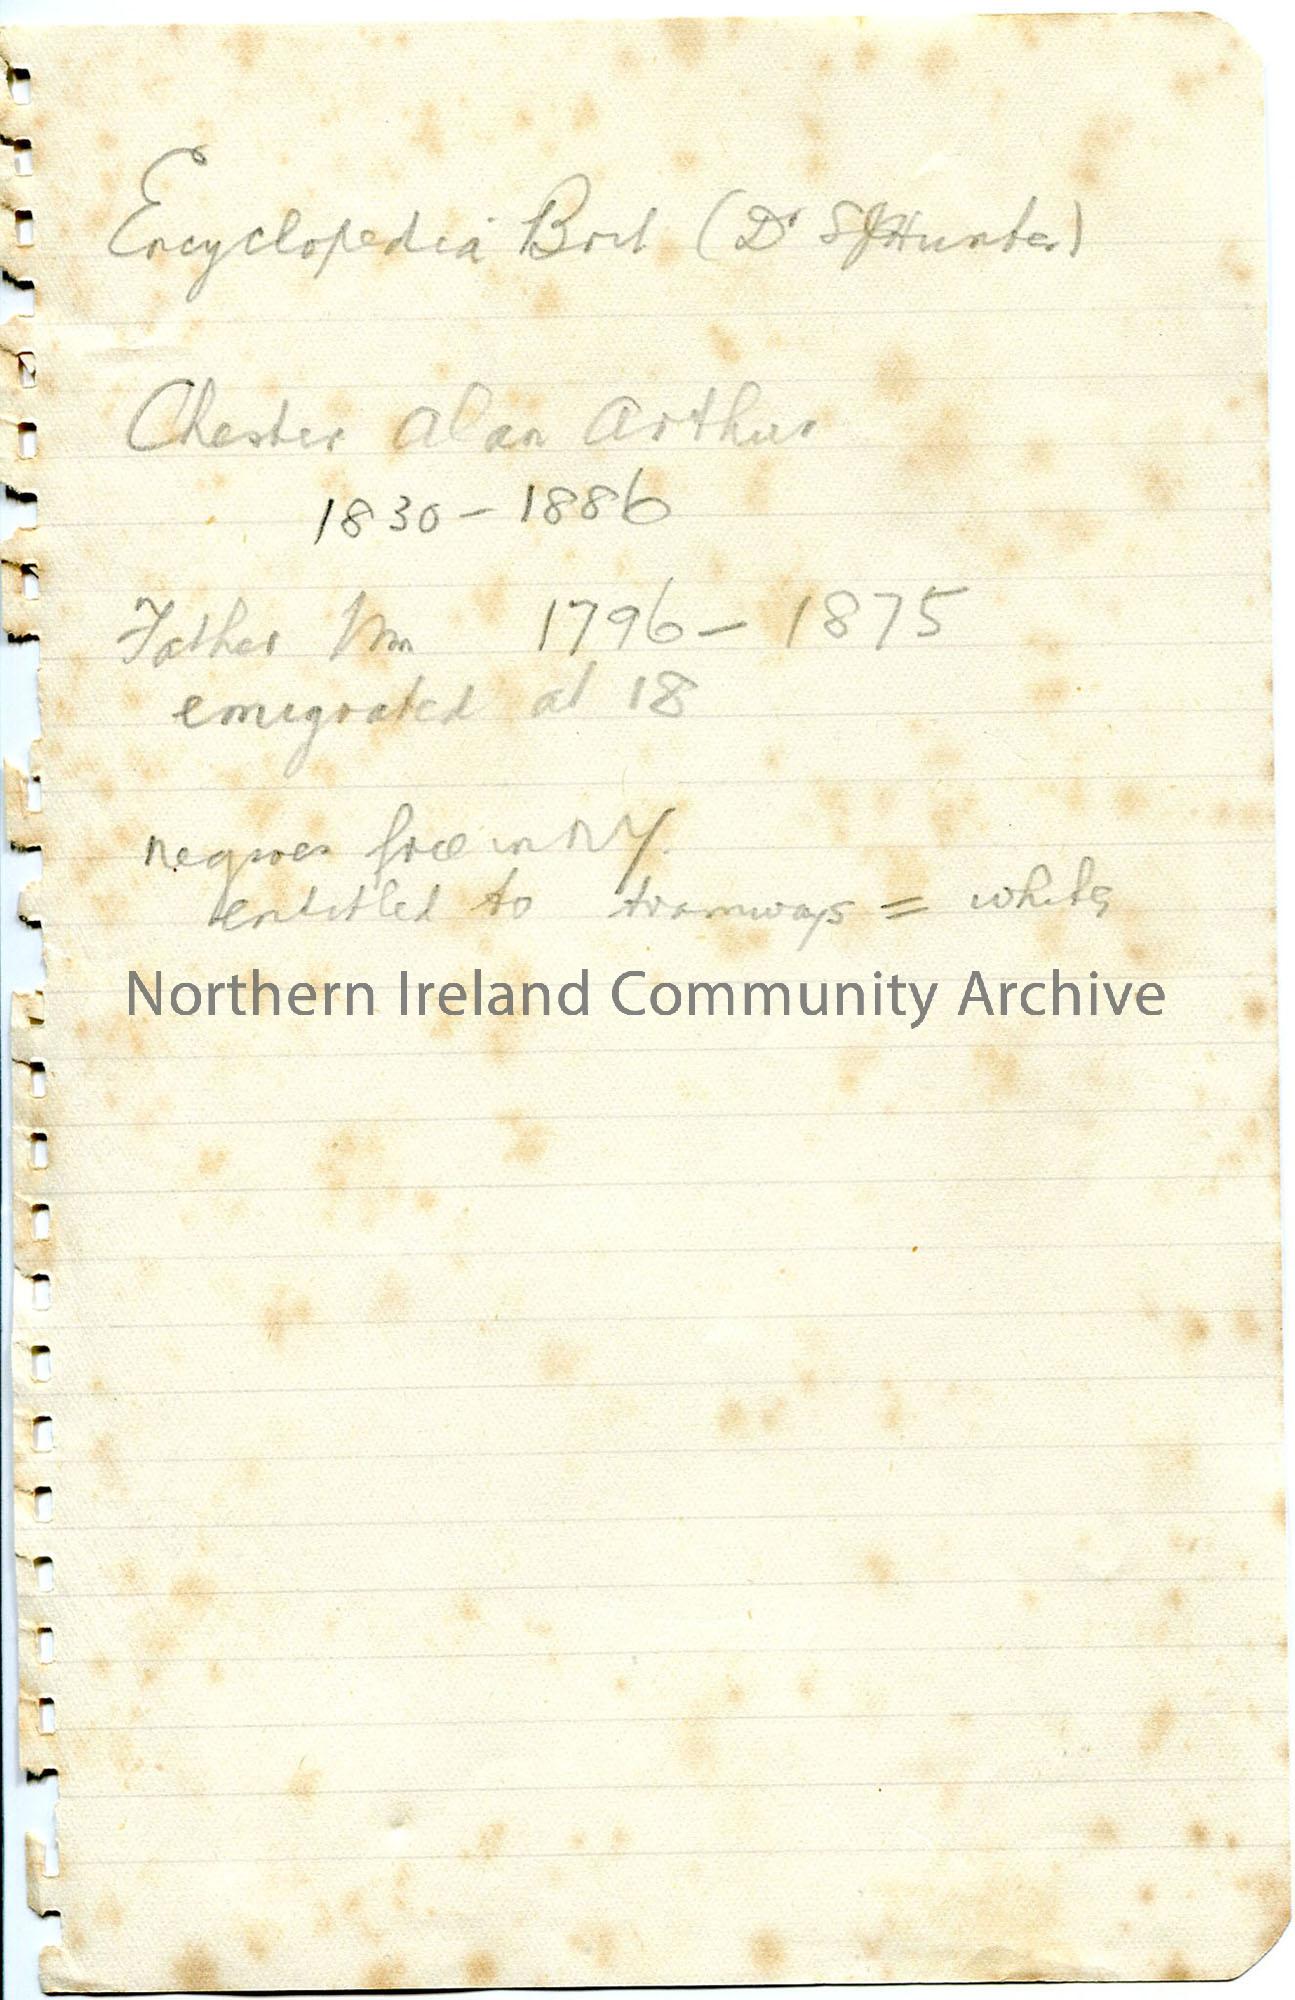 Encyclopedia Brit (Dr SJ Hunter)
Chester Alan Arthur
1830 - 1886
Father Wm 1796 - 1875
emigrated at 18
negroes free in NY.
entitled to tramways = whites
Northern Ireland Community Archive